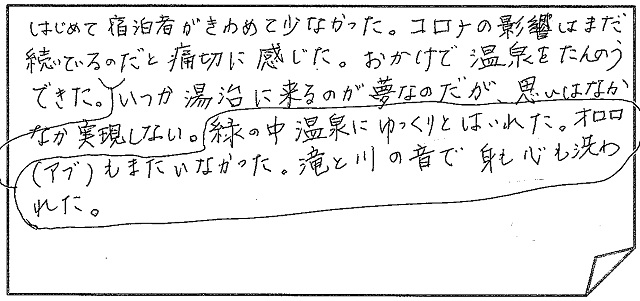 はじめて宿泊者がきわめて少なかった。コロナの影響はまだ
続いているのだと痛切に感じた。おかげで温泉をたんのう
できた。いつか湯治に来るのが夢なのだが、思いはなか
なか実現しない。緑の中温泉にゆっくりとはいれた。オロロ
(アブ)もまだいなかった。滝と川の音で身も心も洗わ
れた。